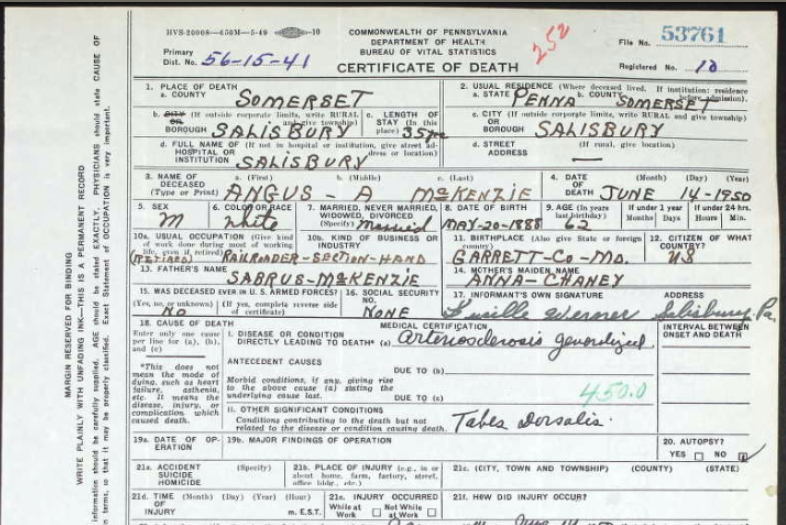 HVS-20008—650M—5-49 10
COMMONWEALTH OF PENNSYLVANIA
DEPARTMENT OF HEALTH
BUREAU OF VITAL STATISTICS
CERTIFICATE OF DEATH
252
File No. 53761
Primary
Dist. No. 56-15-41
Registered No. 10
1. PLACE OF DEATH
a. COUNTY SOMERSET
2. USUAL RESIDENCE (Where deceased lived. If institution: residence before admission).
a. STATE PENNA b. COUNTY SOMERSET
b. CITY (If outside corporate limits, write RURAL and give township)
OR
BOROUGH SALISBURY
c. LENGTH OF STAY (In this place) 35 yrs
c. CITY (If outside corporate limits, write RURAL and give township)
OR
BOROUGH SALISBURY
d. FULL NAME OF (If not in hospital or institution, give street address or location)
HOSPITAL OR
INSTITUTION SALISBURY
d. STREET ADDRESS (If rural, give location)
—
3. NAME OF DECEASED (Type or Print) a. (First) b. (Middle) c. (Last)
ANGUS - A McKENZIE
4. DATE OF DEATH (Month) (Day) (Year)
JUNE 14-1950
5. SEX
M
6. COLOR OR RACE
White
7. MARRIED, NEVER MARRIED, WIDOWED, DIVORCED (Specify) Married
8. DATE OF BIRTH
MAY-20-1888
9. AGE (In years last birthday) 62
If under 1 year Months Days
If under 24 hrs. Hours Min.
10a. USUAL OCCUPATION (Give kind of work done during most of working life, even if retired)
10b. KIND OF BUSINESS OR INDUSTRY
(RETIRED) RAILROADER-SECTION-HAND
11. BIRTHPLACE (Also give State or foreign country)
GARRETT-CO-MD.
12. CITIZEN OF WHAT COUNTRY?
US
13. FATHER'S NAME
SARRUS-McKENZIE
14. MOTHER'S MAIDEN NAME
ANNA-CHANEY
15. WAS DECEASED EVER IN U.S. ARMED FORCES?
(Yes, no, or unknown) (If yes, complete reverse side of certificate)
NO
16. SOCIAL SECURITY NO.
NONE
17. INFORMANT'S OWN SIGNATURE ADDRESS
Lucille Werner Salisbury, Pa.
18. CAUSE OF DEATH
Enter only one cause per line for (a), (b), and (c)
MEDICAL CERTIFICATION
INTERVAL BETWEEN ONSET AND DEATH
I. DISEASE OR CONDITION
DIRECTLY LEADING TO DEATH* (a) Arteriosclerosis generalized
*This does not mean the mode of dying, such as heart failure, asthenia, etc. It means the disease, injury, or complication which caused death.
ANTECEDENT CAUSES
DUE TO (b)
Morbid conditions, if any, giving rise to the above cause (a) stating the underlying cause last.
DUE TO (c)
450.0
II. OTHER SIGNIFICANT CONDITIONS
Conditions contributing to the death but not related to the disease or condition causing death.
Tabes Dorsalis.
19a. DATE OF OPERATION
19b. MAJOR FINDINGS OF OPERATION
20. AUTOPSY?
YES NO
21a. ACCIDENT (Specify)
SUICIDE
HOMICIDE
21b. PLACE OF INJURY (e.g., in or about home, farm, factory, street, office bldg., etc.)
21c. (CITY, TOWN AND TOWNSHIP) (COUNTY) (STATE)
21d. TIME OF INJURY (Month) (Day) (Year) (Hour)
m. E.S.T.
21e. INJURY OCCURRED
While at Work Not While at Work
21f. HOW DID INJURY OCCUR?
MARGIN RESERVED FOR BINDING
WRITE PLAINLY WITH UNFADING INK—THIS IS A PERMANENT RECORD
information should be carefully supplied. AGE should be stated EXACTLY. PHYSICIANS should state CAUSE OF
in terms, so that it may be properly classified. Exact Statement of OCCUPATION is very important.